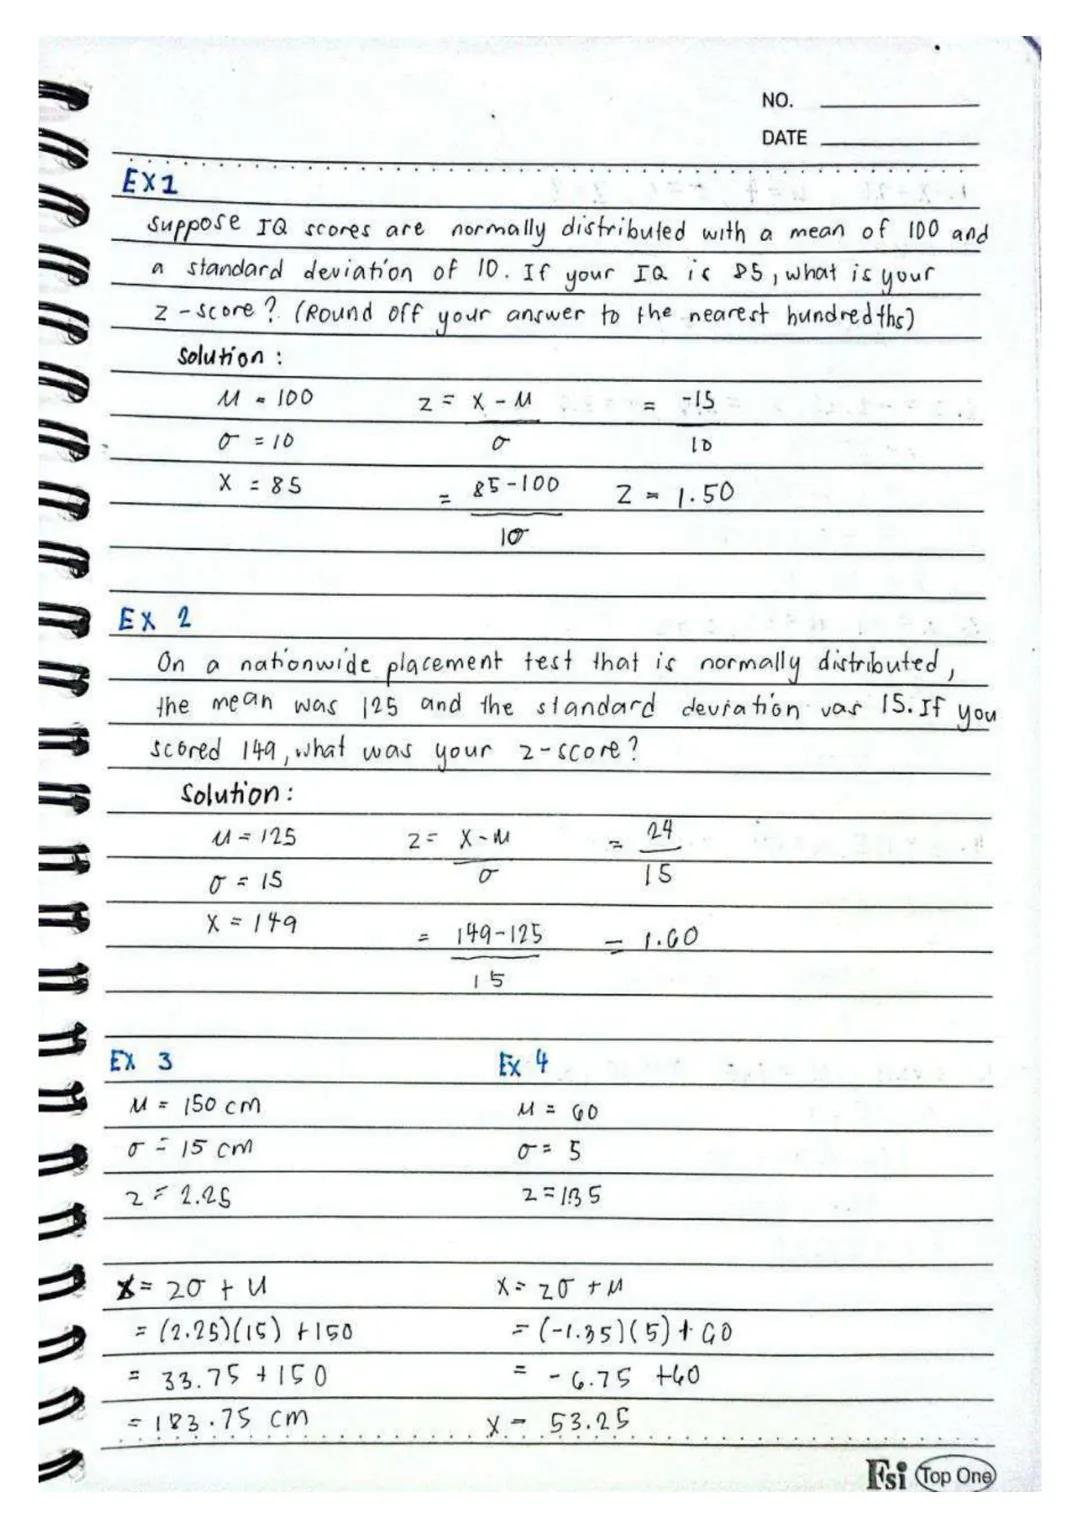 NO.
DATE
EX1
Suppose IQ scores are normally distributed with a mean of 100 and
a standard deviation of 10. If your IQ is 85, what is your
z-score? (Round off your answer to the nearest hundredths)
Solution:
μ = 100    z = X - μ    = -15
σ = 10    σ    10
X = 85    = 85-100    Z = 1.50
10
Ex 2
On a nationwide placement test that is normally distributed,
the mean was 125 and the standard deviation was 15. If you
scored 149, what was your z-score?
Solution:
μ = 125    z = X - μ    = 24
σ = 15    σ    15
X = 149    = 149-125    = 1.60
15
EX 3    Ex 4
μ = 150 cm    μ = 60
σ = 15 cm    σ = 5
z = 2.25    z = 135
X = zσ + μ    X = zσ + μ
= (2.25)(15) + 150    = (-1.35)(5) + 60
= 33.75 + 150    = -6.75 + 60
= 183.75 cm    X = 53.25
Fsi Top One